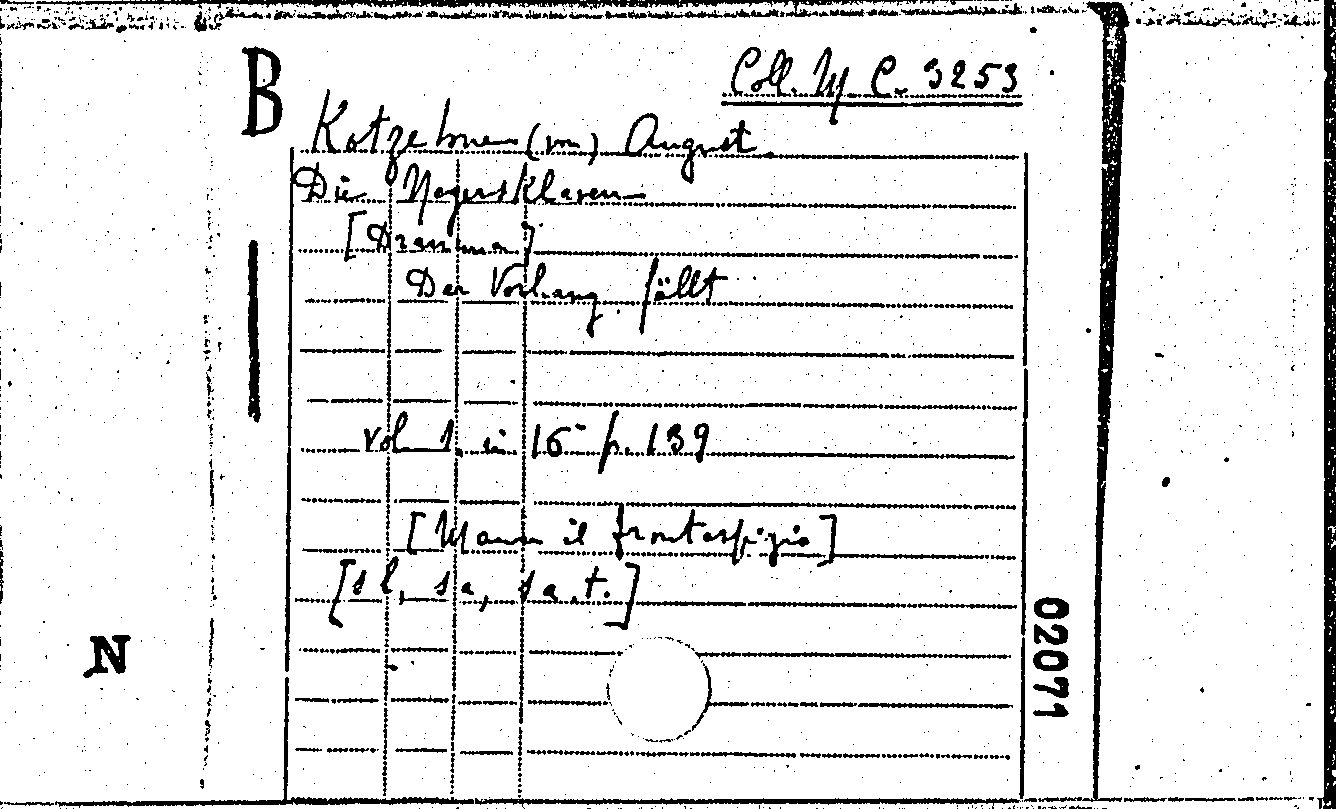 B
Coll. M. C. 3253
Kotzebue (von) August
Die Negersklaven
[Dramma]
Der Vorhang fällt
vol 1. in 16° p. 139
[Manca il frontespizio]
[s l, s a, s a. t.]
N
02071